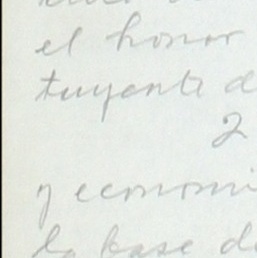 el honor
tuyente d
2
y economi
la base de